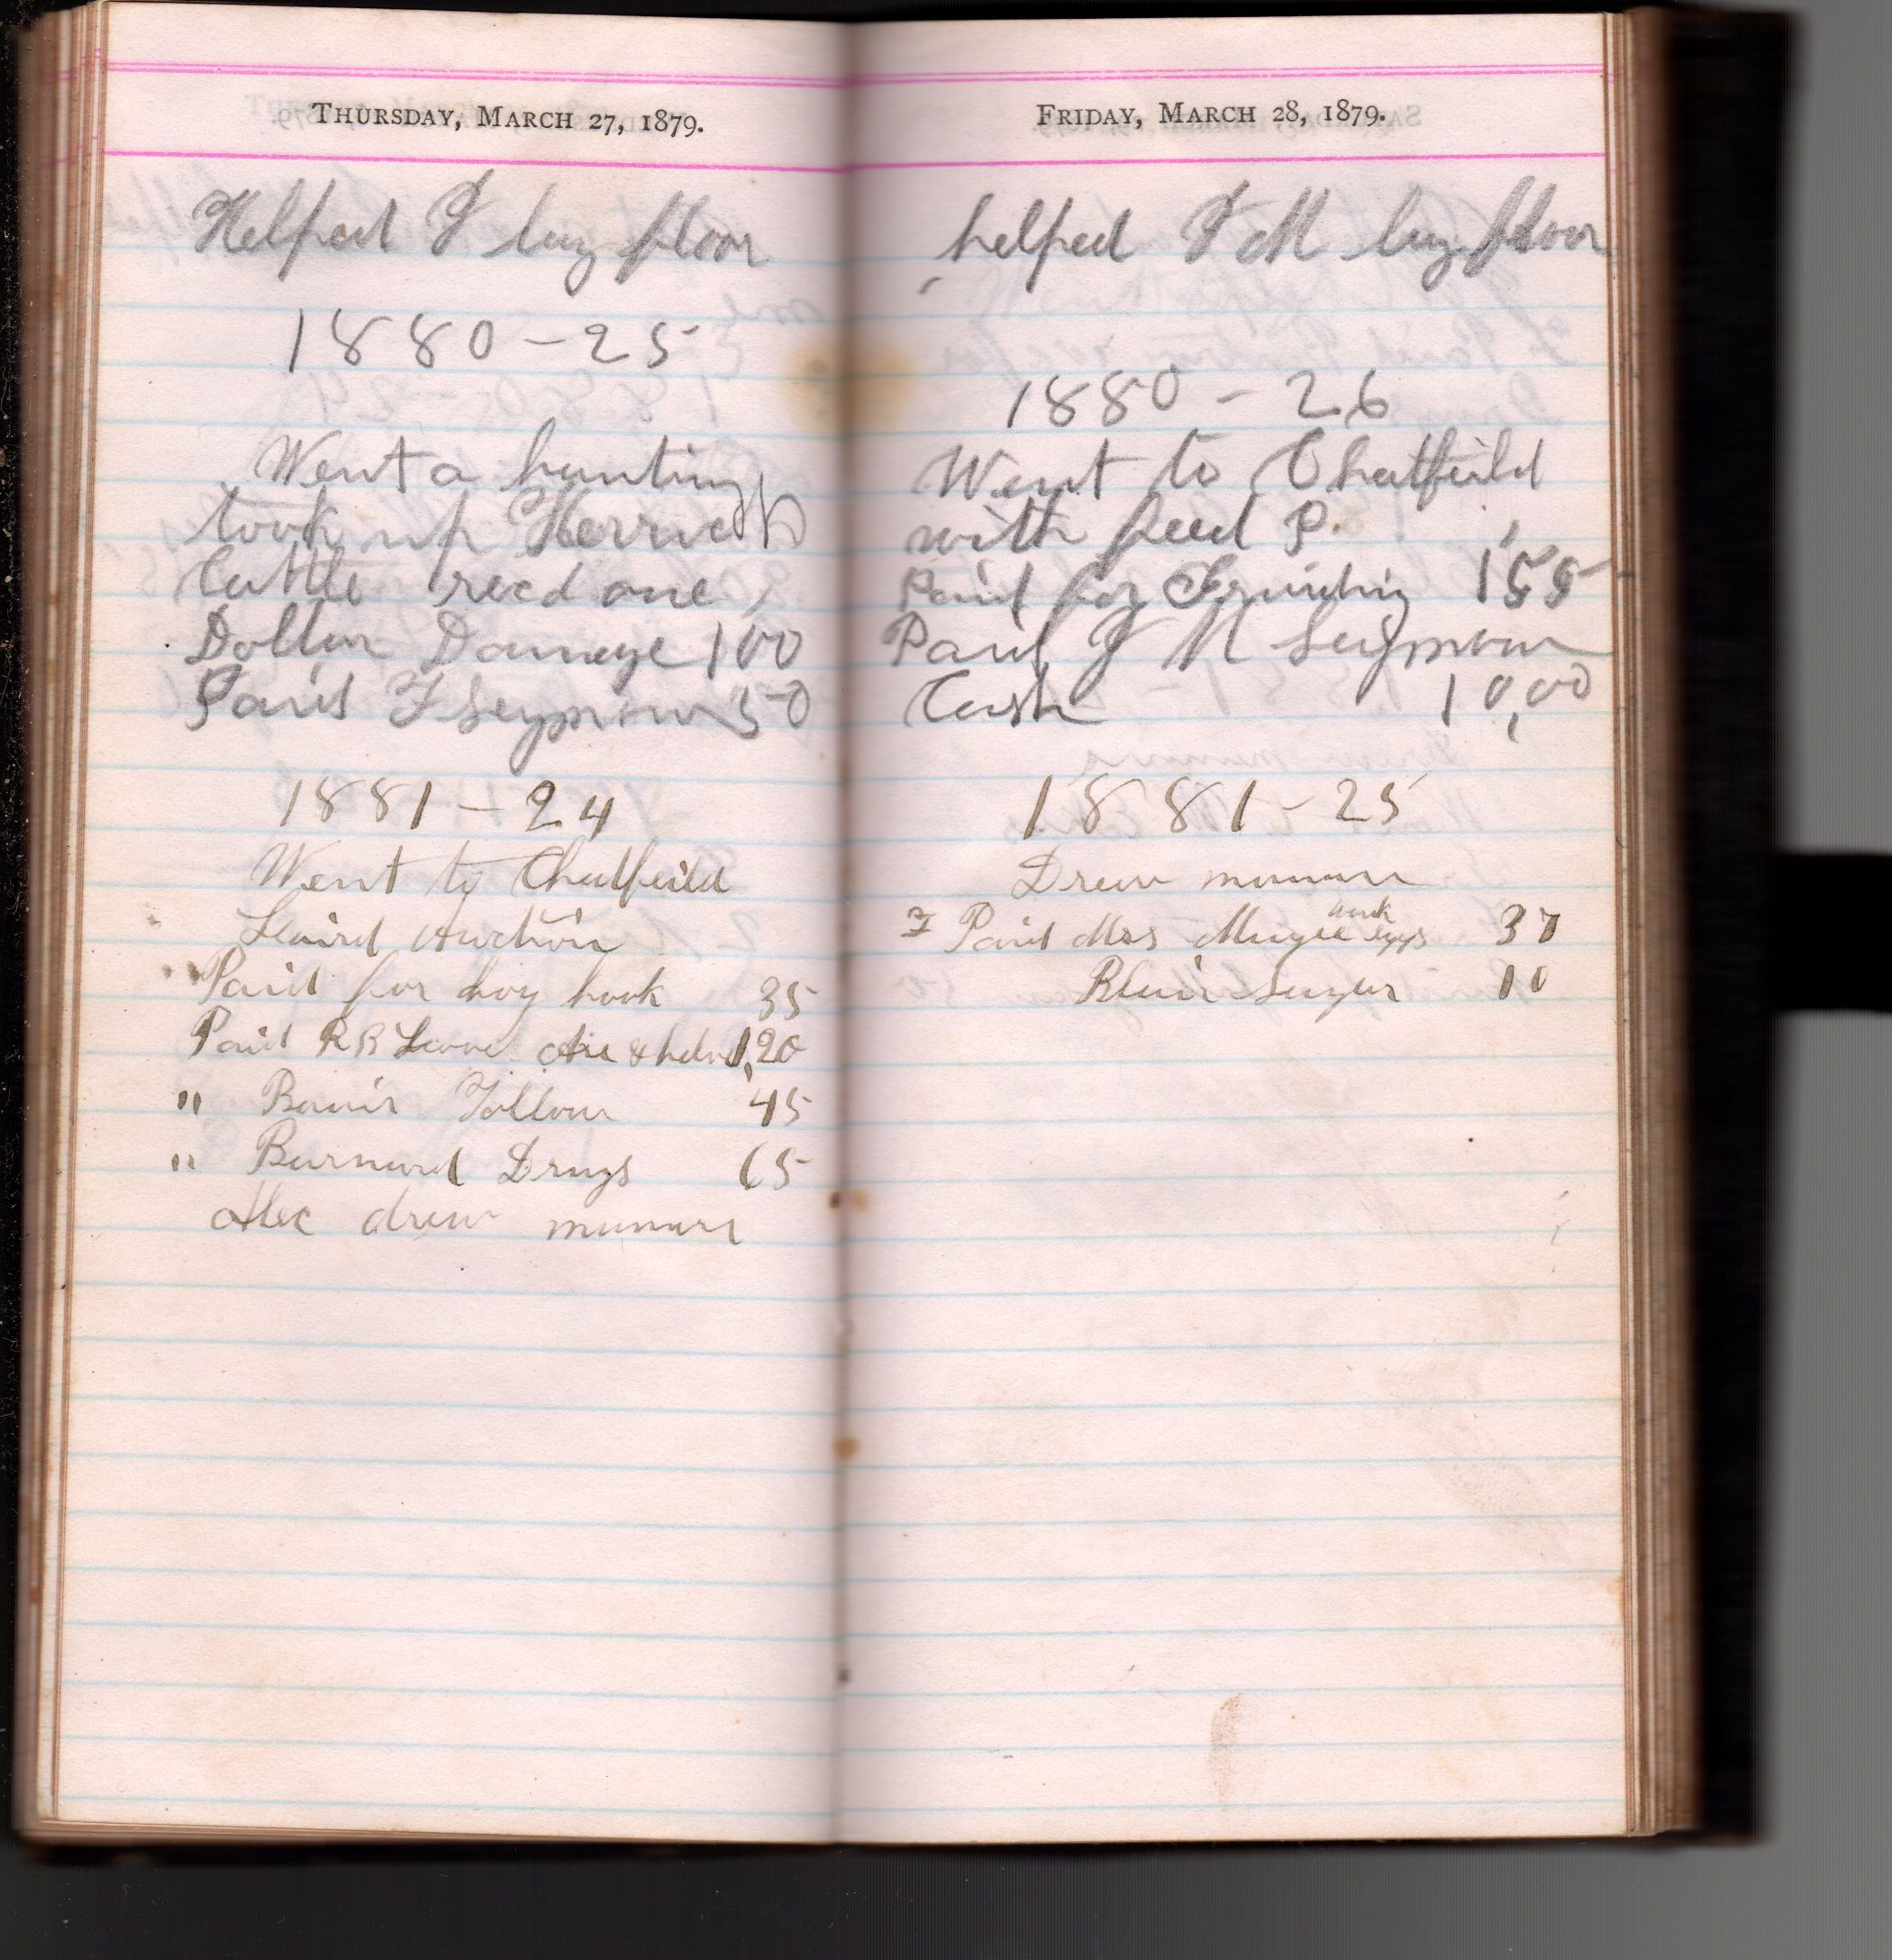 THURSDAY, MARCH 27, 1879.
Helped F lay floor
1880-25
Went a hunting
took up
Cattle recd one
Dollar Damage 100
Paid F Seymour 50
1881-24
Went to Chatfeild
Laird Auction
Paid for hog hook 35
Paid R R Axe & helve 1,20
" Tallow 45
" Burnard Drugs 65
Alec drew manure
FRIDAY, MARCH 28, 1879.
helped F M lay floor
1880-26
Went to Chatfeild
with feed P.
Paid for Grinding 1,55
Paid F M Seymour
Cash 10,00
1881-25
Drew manure
F Paid Mrs Magee duck eggs 37
Blair Sugar 10